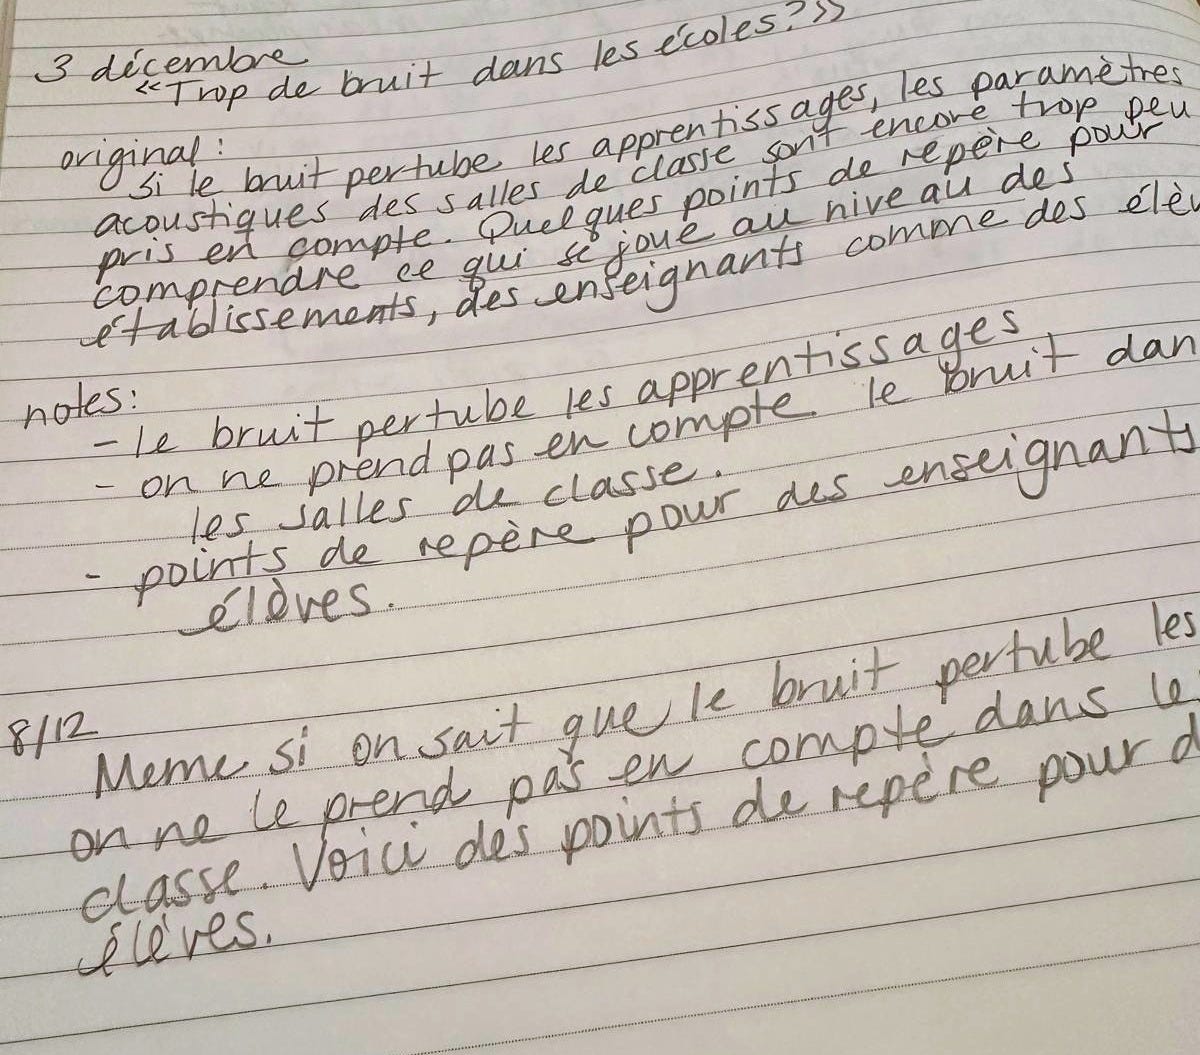 3 décembre
«Trop de bruit dans les écoles?»
original:
si le bruit pertube les apprentissages, les paramètres
acoustiques des salles de classe sont encore trop peu
pris en compte. Quelques points de repère pour
comprendre ce qui se joue au niveau des
établissements, des enseignants comme des élèv
notes:
- le bruit pertube les apprentissages
- on ne prend pas en compte le bruit dan
les salles de classe.
- points de repère pour des enseignants
élèves.
8/12
Meme si on sait que le bruit pertube les
on ne le prend pas en compte dans le
classe. Voici des points de repère pour d
élèves.